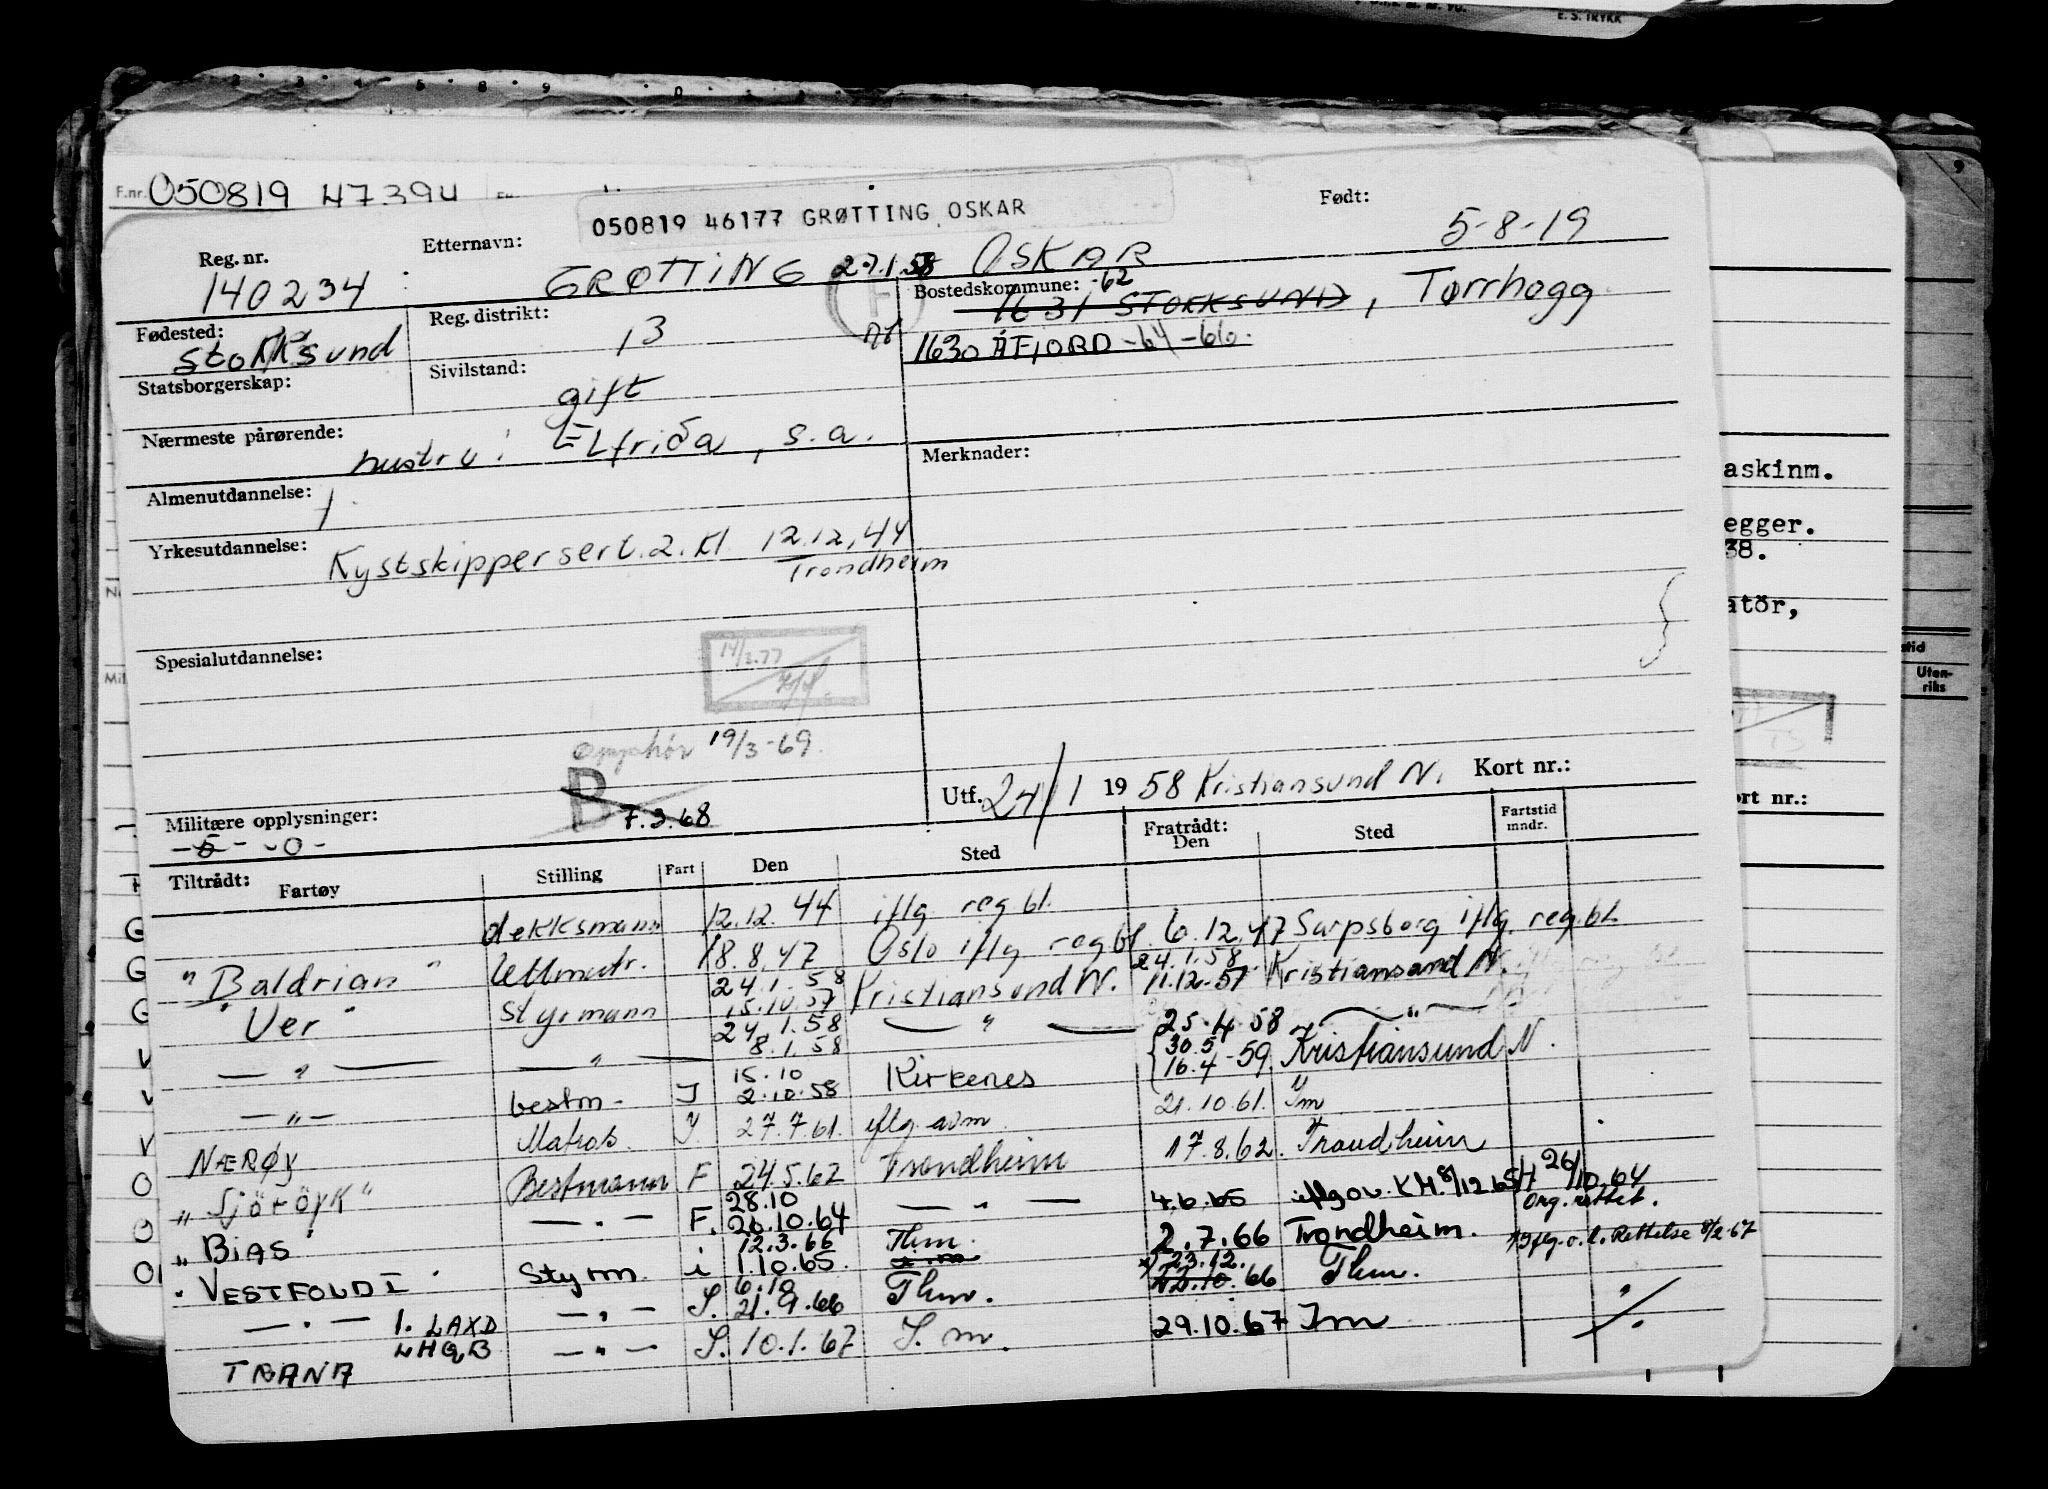 E. S. TRYKK
F.nr. 050819 47394
050819 46177 GRØTTING OSKAR
Reg. nr. 140234
Etternavn: GRØTTING 27.1.58 OSKAR
Født: 5-8-19
Fødested: Stokksund
Reg. distrikt: 13
Bostedskommune: -62
1631 STOKKSUND, Tørrhogg
1630 ÅFJORD -64 -66.
Statsborgerskap:
Sivilstand: gift
Nærmeste pårørende: hustru: Elfrida, s.a.
Merknader:
Almenutdannelse:
Yrkesutdannelse: Kystskippersert. 2. kl. 12.12.44
Trondheim
Spesialutdannelse:
Opphør 19/3-69.
B 7.3.68
Utf. 24/1 1958 Kristiansund N. Kort nr.:
Militære opplysninger:
-0-
Tiltrådt: Fartøy Stilling Fart Den Sted Fratrådt: Den Sted Fartstid mndr.
dekksmann 12.12.44 iflg reg bl.
"Baldrian" 18.8.47 Oslo iflg reg bl. 6.12.47 Sarpsborg iflg. reg. bl.
"Ver" Styrmann 24.1.58 15.10.57 Kristiansund N. 24.1.58 11.12.57 Kristiansund N.
— " — — " — 24.1.58 8.1.58 — " — 25.4.58 — " —
— " — bestm. 15.10 2.10.58 Kirkenes 30.5 16.4-59 Kristiansund N.
NÆRØY Matros. 27.7.61. iflg. avm. 21.10.61. Tm
"Sjöröyk" Bestmann F 24.5.62 Trondheim 17.8.62. Trondheim
"BIAS" — " — F. 28.10 26.10.64 — " — 4.6.65 iflg ov. KM. 8/12 65 26/10.64 Org. rettet.
"VESTFOLD I" Styrm. i 12.3.66 1.10.65. Thm. 2.7.66 Trondheim. *) Iflg. o.l. Rettelse 8/2-67
— " — 1. LAXD — " — S. 6.10 21.9.66 Thm. *) 23.12. 12.10.66 Thm.
TRANA LHQB — " — S. 10.1.67 S. m. 29.10.67 Tm
askinm.
egger.
38.
atör,
Uten-
riks
ort nr.: